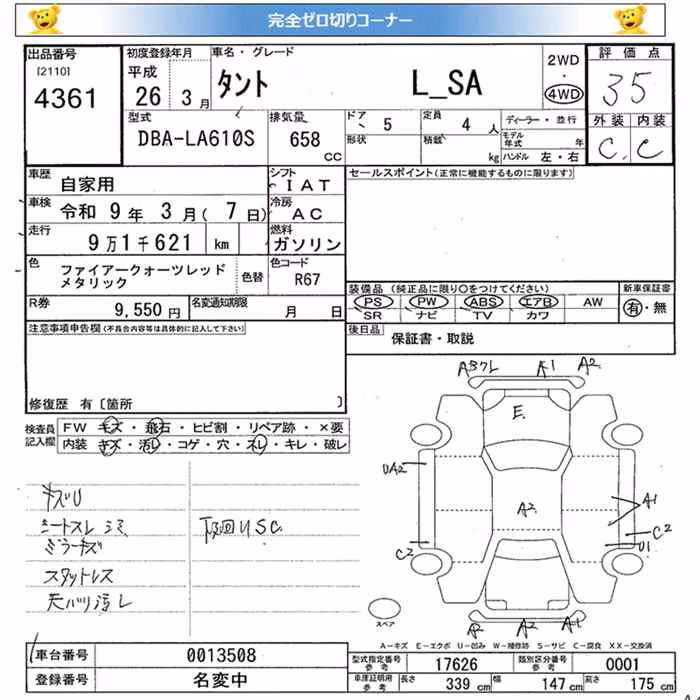 完全ゼロ切りコーナー
出品番号
[2110]
4361
初度登録年月
平成
26 3月
車名・グレード
タント L_SA
2WD
・
4WD
評価点
35
型式
DBA-LA610S
排気量
658
CC
ドア 5
形状
定員 4 人
積載 kg
ディーラー・並行
モデル年式 年
ハンドル 左・右
外装 内装
C. C
車歴 自家用
シフト IAT
車検 令和 9年 3月( 7日)
冷房 AC
走行 9万1千621 km
燃料 ガソリン
色 ファイアークォーツレッド
メタリック
色替
色コード
R67
R券 9,550円
名変通知期限 月 日
セールスポイント(正常に機能するものに限ります)
装備品 (純正品に限り○をつけてください)
PS PW ABS エアB AW
SR ナビ TV カワ
新車保証書
有・無
後日品 保証書・取説
注意事項申告欄(不具合内容等は具体的に記入して下さい)
修復歴 有〔箇所 〕
検査員記入欄
FW キズ・飛石・ヒビ割・リペア跡・×要
内装 キズ・汚レ・コゲ・穴・スレ・キレ・破レ
キズU
シートスレ シミ
ミラーキズ
スタットレス
天バリ汚レ
下回りSC
A1 A2
E.
UA2
A2
A1
C2
U1
C2
A2 A2 A1
スペア
A−キズ E−エクボ U−凹み W−補修跡 S−サビ C−腐食 XX−交換済
車台番号 0013508
登録番号 名変中
型式指定番号 参考 17626
類別区分番号 参考 0001
車庫証明用 参考 長さ 339 cm 幅 147 cm 高さ 175 cm